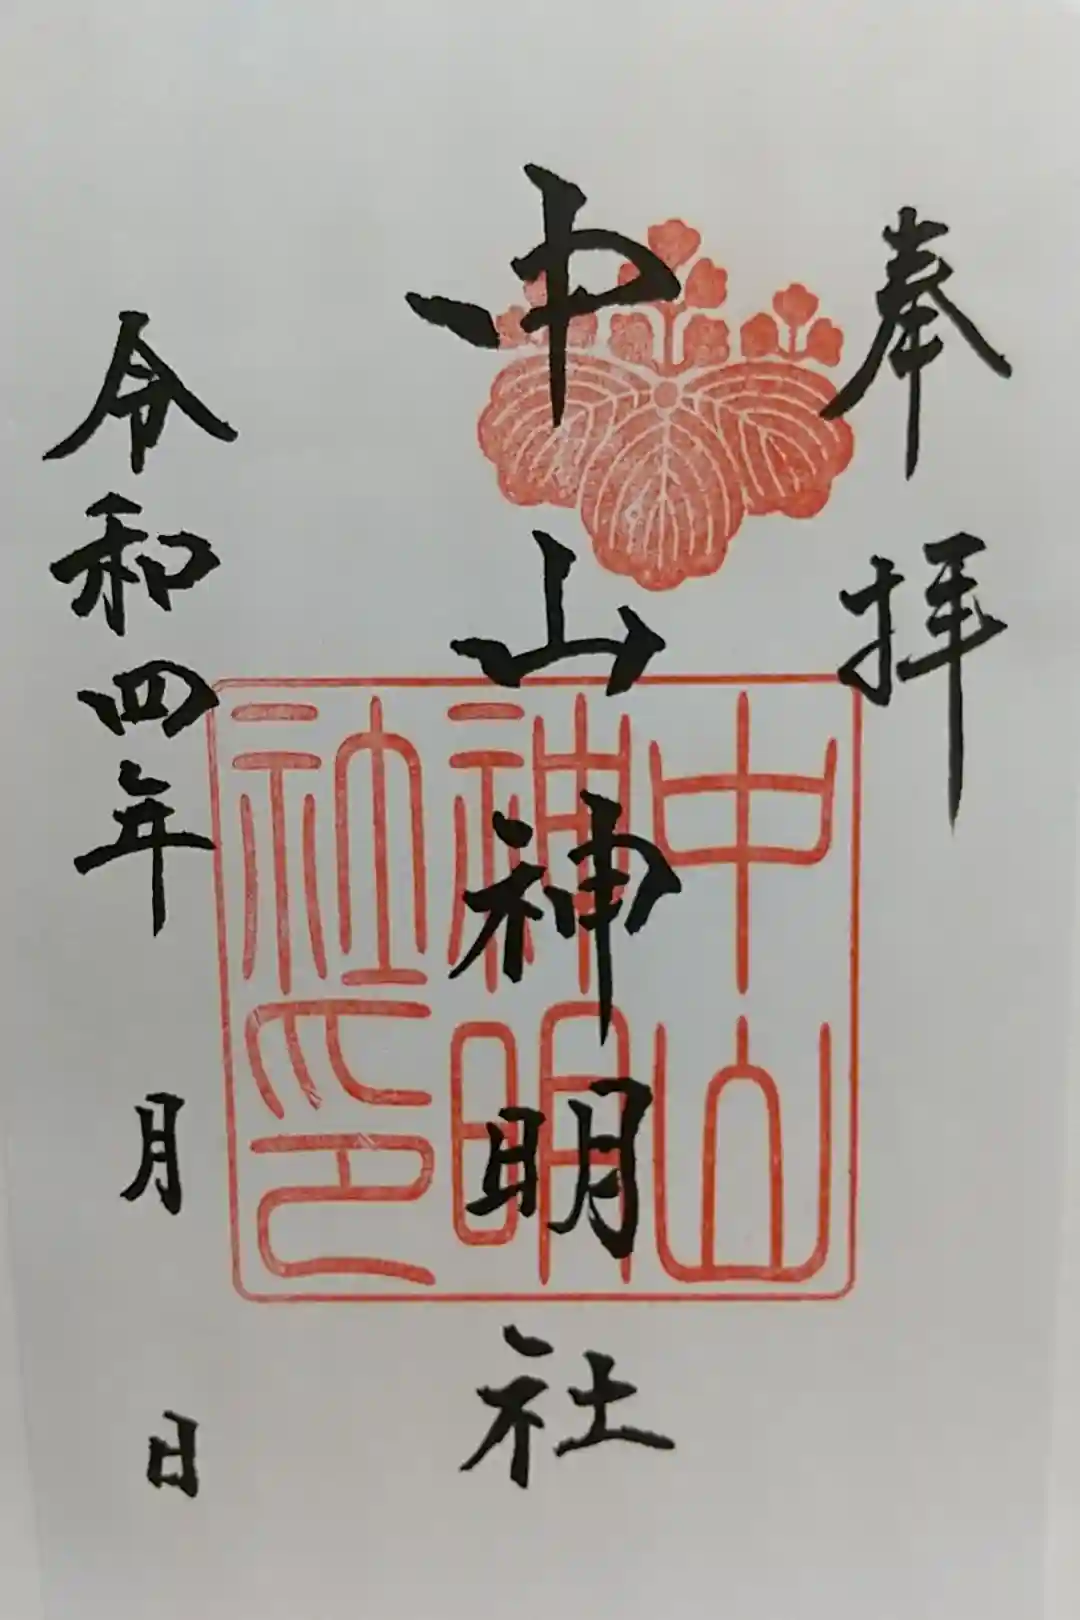 奉拝
中山神明社
中山
神明
社印
令和四年 月 日